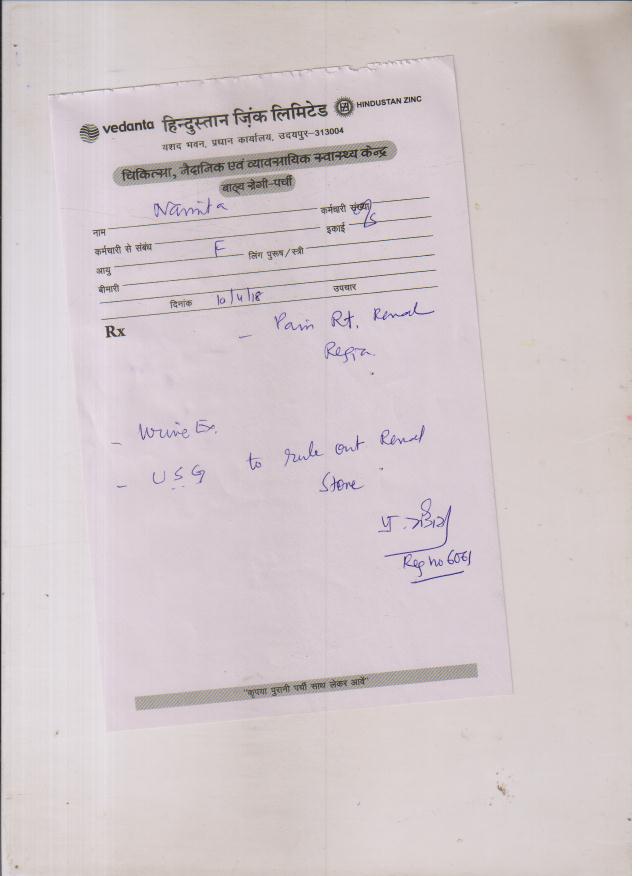 vedanta हिन्दुस्तान ज़िंक लिमिटेड HINDUSTAN ZINC
यशद भवन, प्रधान कार्यालय, उदयपुर-313004
चिकित्सा, नैदानिक एवं व्यावसायिक स्वास्थ्य केन्द्र
बाह्य रोगी-पर्ची
नाम Namita कर्मचारी संख्या
कर्मचारी से संबंध इकाई
आयु F लिंग पुरूष/स्त्री
बीमारी
दिनांक 10/4/18 उपचार
Rx
- Pain Rt. Renal
Regia.
- Urine Ex.
- USG to rule out Renal
Stone
Reg no 6061
"कृपया पुरानी पर्ची साथ लेकर आवें"